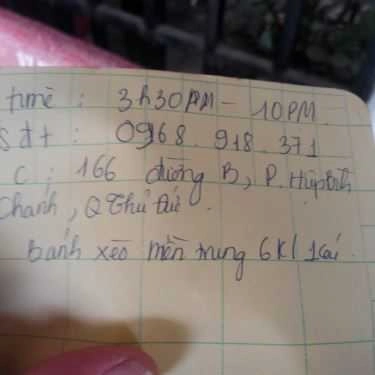 time : 3h30PM - 10PM.
sđt : 0968.918.371
C : 166 đường B, P. Hiệp Bình
Chánh, Q Thủ Đức.
Bánh xèo miền trung 6K/1cái.